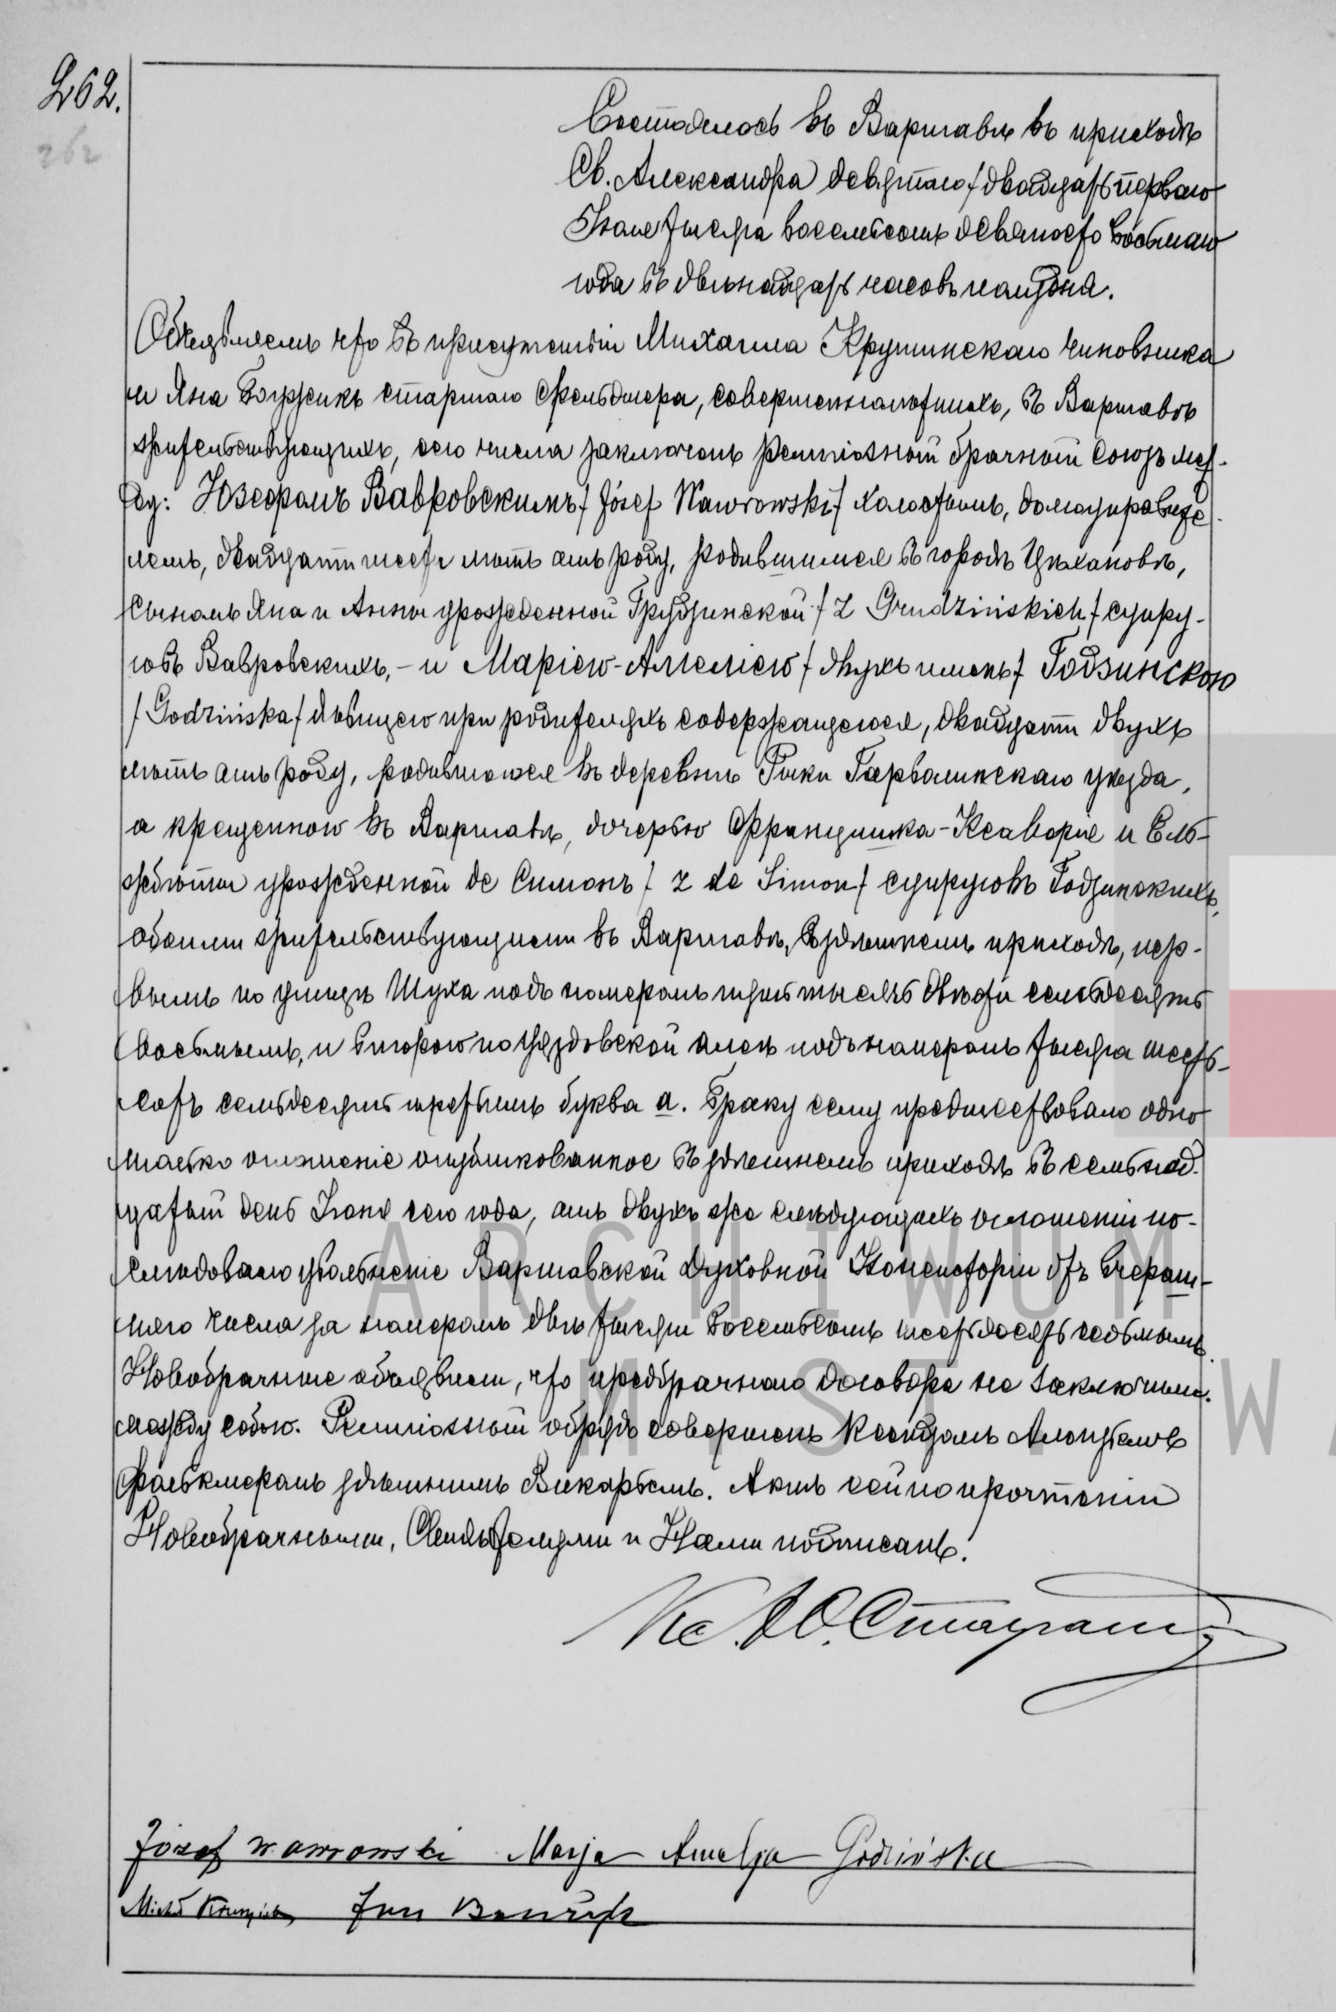 262.
262
Состоялось въ Варшавѣ въ приходѣ
Св. Александра девятаго/двадцать перваго
Іюня тысяча восемьсотъ девяносто восьмаго
года въ двѣнадцать часовъ полудня.
Объявляемъ что въ присутствіи Михаила Крушинскаго чиновника
и Яна старшаго фельдшера, совершеннолѣтнихъ, въ Варшавѣ
жительствующихъ, сего числа заключенъ религіозный брачный союзъ меж-
ду: Юзефомъ Вавровскимъ /Józef Wawrowski/ холостымъ, домоуправите-
лемъ, двадцати шести лѣтъ отъ роду, родившимся въ городѣ Цѣхановѣ,
сыномъ Яна и Анны урожденной Грудзинской /z Grudzińskich/ супру-
говъ Вавровскихъ, - и Маріею-Амеліею /двухъ именъ/ Годзинскою
/Godzińska/ дѣвицею при родителяхъ содержащеюся, двадцати двухъ
лѣтъ отъ роду, родившеюся въ деревнѣ Рыки Гарволинскаго уѣзда,
а крещенною въ Варшавѣ, дочерью Францишка-Ксаверія и Ель-
жбѣты урожденной де Симонъ /z de Simon/ супруговъ Годзинскихъ,
обоими жительствующими въ Варшавѣ, въ здѣшнемъ приходѣ, пер-
вымъ по улицѣ Шуха подъ номеромъ пять тысячъ двѣсти семьдесятъ
восьмымъ, и второю по Уяздовской аллеѣ подъ номеромъ тысяча шесть-
сотъ семьдесятъ третьимъ буква а. Браку сему предшествовало одно
только оглашеніе опубликованное въ здѣшнемъ приходѣ въ семьнад-
цатый день Іюня сего года, отъ двухъ же слѣдующихъ оглашеній по-
слѣдовало увольненіе Варшавской Духовной Консисторіи отъ вчераш-
няго числа за номеромъ двѣ тысячи восемьсотъ шестьдесятъ седьмымъ.
Новобрачные объявили, что предбрачнаго договора не заключили
между собою. Религіозный обрядъ совершенъ Ксендзомъ
здѣшнимъ Викаріемъ. Актъ сей по прочтеніи
Новобрачными, Свидѣтелями и Нами подписанъ.
Józef Wawrowski Marja Amelja Godzińska
Jan
ARCHIWUM
M. ST. WA